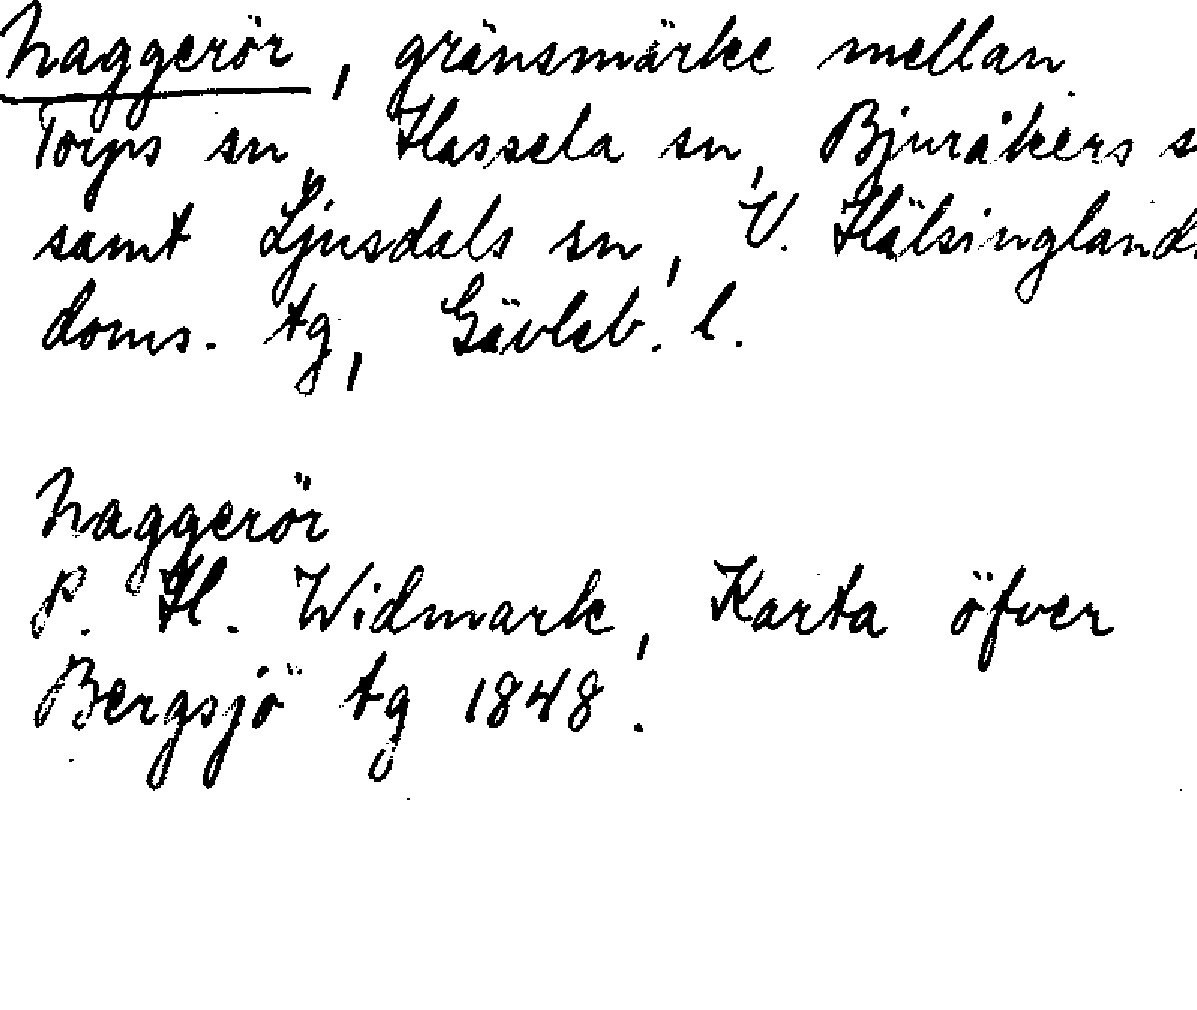 Naggerör, gränsmärke mellan
Torps sn, Hassela sn, Bjuråkers s
samt Ljusdals sn, V. Hälsinglands
doms. tg, Gävleb. l.
Naggerör
P. H. Widmark, Karta öfver
Bergsjö tg 1848.